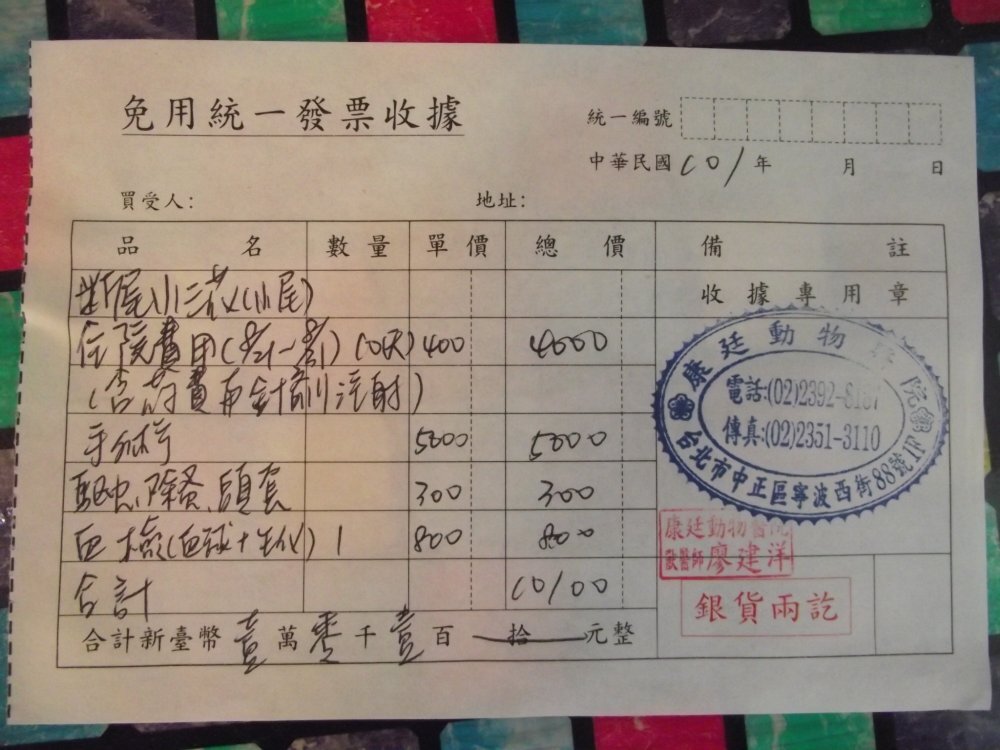 免用統一發票收據
統一編號
中華民國101年 月 日
買受人: 地址:
品名 數量 單價 總價 備註
斷尾小三花(小尾)
收據專用章
住院費用( ) 10天 400 4000
(含 費 針劑注射)
手術 5000 5000
驅蟲、除蚤、頭套 300 300
血檢(血球+生化) 1 800 800
合計 10100
合計新臺幣壹萬零千壹百拾元整
康廷動物醫院
電話:(02)2392-8187
傳真:(02)2351-3110
台北市中正區寧波西街88號1F
康廷動物醫院
獸醫師廖建洋
銀貨兩訖